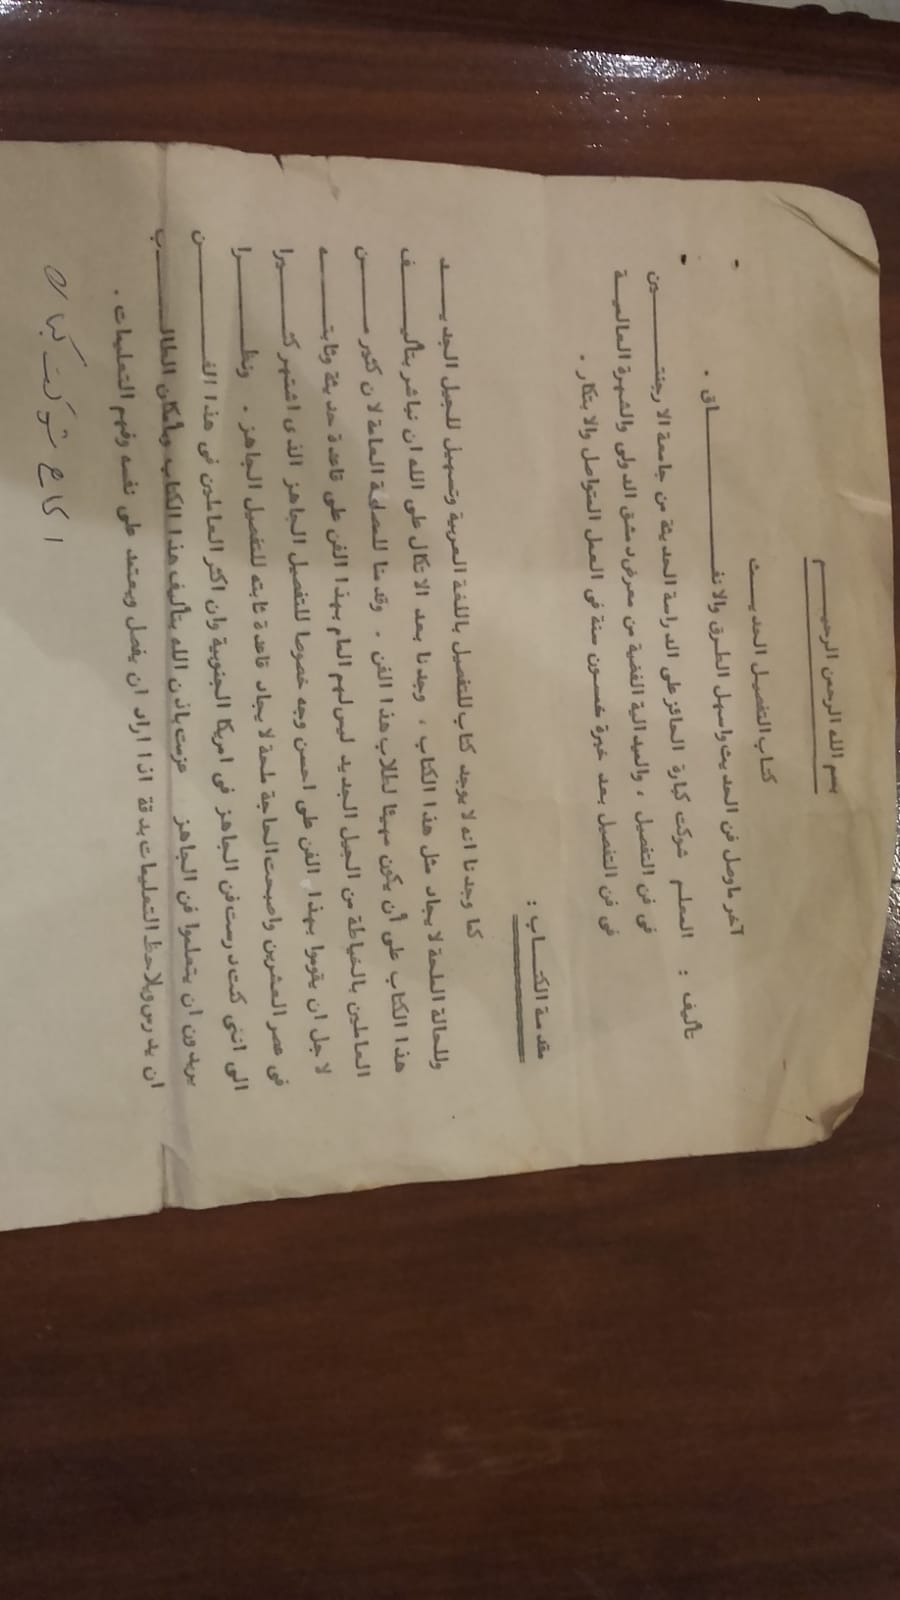 بسم الله الرحمن الرحيم
كتاب التفصيل الحديث
آخر ماوصل فن الحديث واسهل الطرق والانفاق .
تأليف : المعلم شوكت كبارة الحائز على الدراسة الحديثة من جامعة الارجنتين
فى فن التفصيل ، والميدالية الفضية من معرض دمشق الدولى والشهرة العالمية
فى فن التفصيل بعد خبرة خمسون سنة فى العمل المتواصل والابتكار .
مقدمة الكتاب :
كما وجدنا انه لا يوجد كتاب للتفصيل باللغة العربية وتسهيل للجيل الجديد
وللحالة الملحة لايجاد مثل هذا الكتاب ، وجدنا بعد الاتكال على الله ان نباشر بتأليف
هذا الكتاب على أن يكون مهيئا لطلاب هذا الفن . وقدمنا للمصلحة العامة لان كثير من
العاملين بالخياطة من الجيل الجديد ليس لهم المام بهذا الفن على قاعدة حديثة وثابته
لاجل ان يقوموا بهذا الفن على احسن وجه خصوصا للتفصيل الجاهز الذى اشتهر كثيرا
فى عصر العشرين واصبحت الحاجة ملحة لايجاد قاعدة ثابته للتفصيل الجاهز . ونظرا
الى اننى كنت درست فن الجاهز فى امريكا الجنوبية وان اكثر العاملين فى هذا الفن
يريدون ان يتعلموا فن الجاهز عزمت باذن الله بتأليف هذا الكتاب وبأمكان الطالب
ان يدرس ويلاحظ التعليمات بدقة اذا اراد ان يفصل ويعتمد على نفسه وفهم التعليمات .
شوكت كبارة